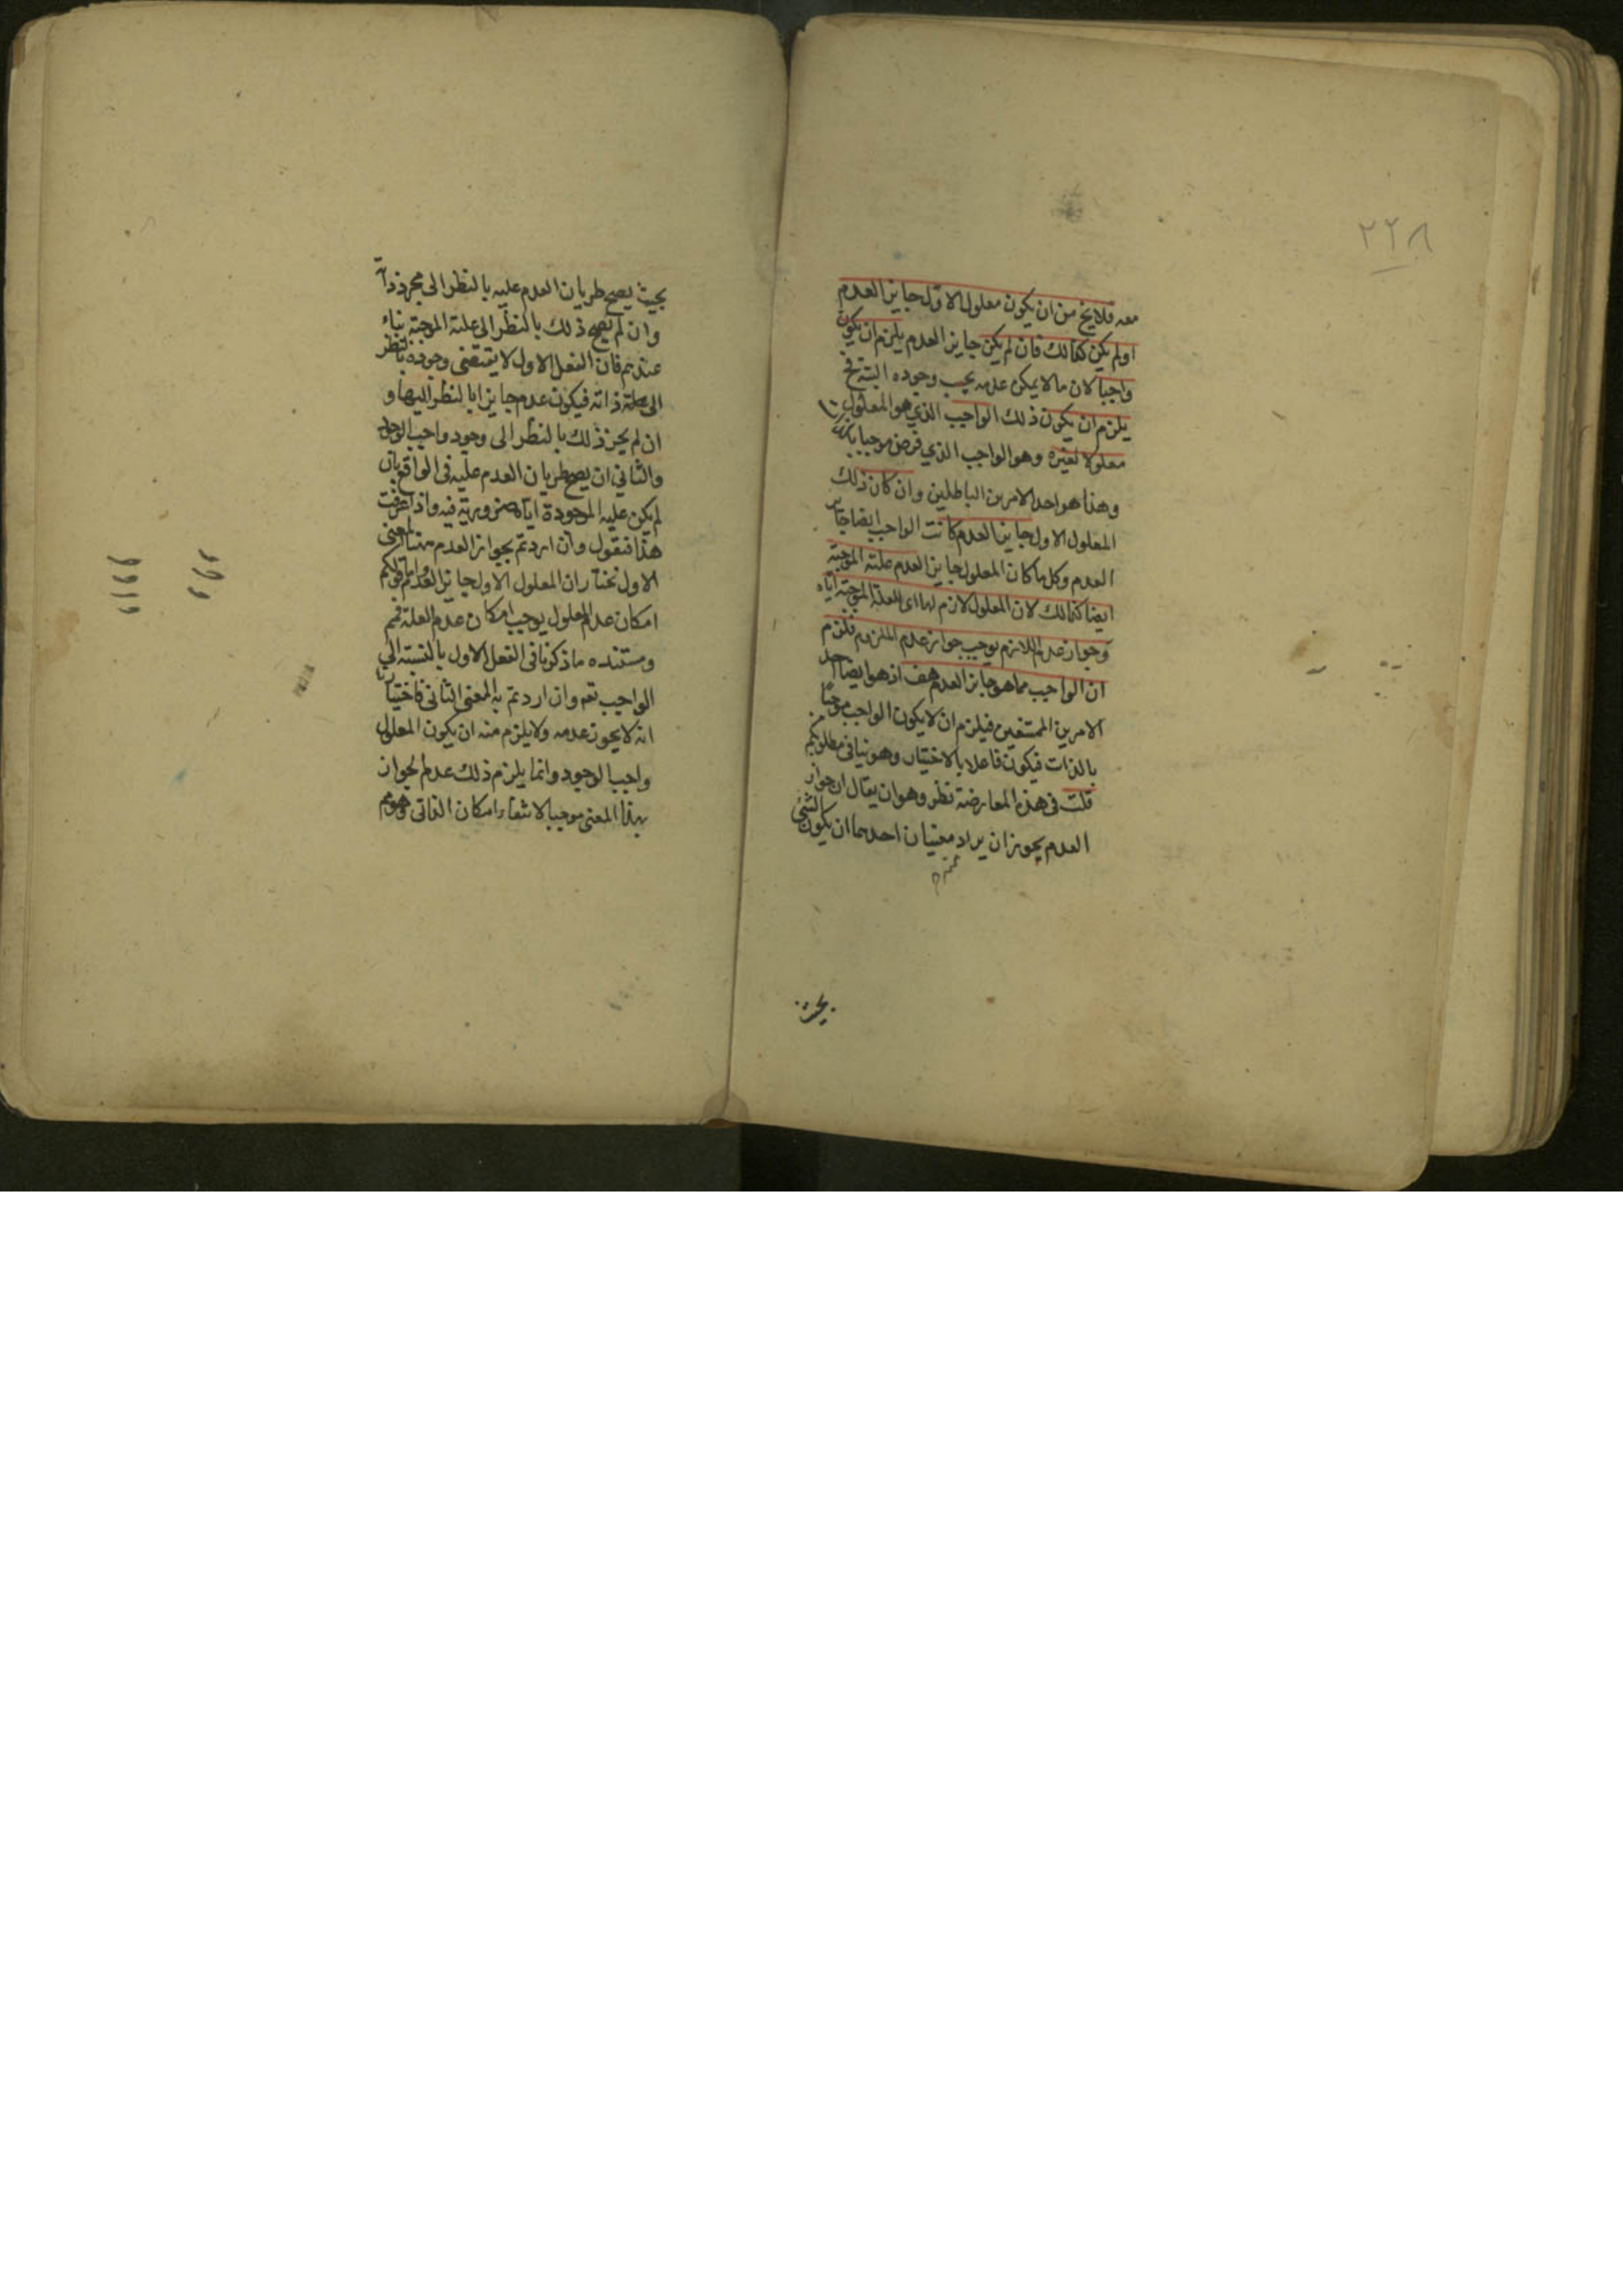 ٢٢٨
معه فلا يخ من ان يكون معلول الاول جايز العدم
اولم يكن كذالك فان لم يكن جايز العدم يلزم ان يكون
واجبا لان مالا يمكن عدمه يجب وجوده البتة فح
يلزم ان يكون ذلك الواجب الذي هو المعلول
معلولا لغيره وهو الواجب الذي فرض موجبا بالذات
وهذا هو احد الامرين الباطلين وان كان ذلك
المعلول الاول جايز العدم كانت الواجب ايضا جايز
العدم وكل ما كان المعلول جايز العدم علته الموجبة
ايضا كذالك لان المعلول لازم لها اى للعلة الموجبة اياه
وجواز عدم اللازم يوجب جواز عدم الملزوم فلزم
ان الواجب مما هو جايز العدم هف اذ هو ايضا احد
الامرين الممتنعين فيلزم ان لا يكون الواجب موجبا
بالذات فيكون فاعلا بالاختيار وهو ينافى مطلوبكم
قلت فى هذه المعارضة نظر وهو ان يقال ان جواز
العدم يجوز ان يراد معنيان احدهما ان يكون الشئ
بحيث
بحيث يصح طريان العدم عليه بالنظر الى مجرد ذاته
وان لم يصح ذلك بالنظر الى علته الموجبة بناء
عندهم فان الفعل الاول لا يقتضى وجوده بالنظر
الى ذاته فيكون عدم جايزا بالنظر اليها و
ان لم يجز ذلك بالنظر الى وجود واجب الوجود
والثانى ان يصح طريان العدم عليه فى الواقع بان
لم يكن عليه الموجودة اياه ضرورية فيه واذا عرفت
هذا فنقول وان اردتم بجواز العدم ههنا المعنى
الاول نختار ان المعلول الاول جايز العدم واما قولكم
امكان عدم المعلول يوجب امكان عدم العلة فمم
ومستنده ما ذكرنا فى الفعل الاول بالنسبة الى
الواجب تعم وان اردتم به المعنى الثانى فاختيارنا
انه لا يجوز عدمه ولا يلزم منه ان يكون المعلول
واجب الوجود وانما يلزم ذلك عدم الجواز
بهذا المعنى موجبا لانتفاء امكان الذاتى وهو مم